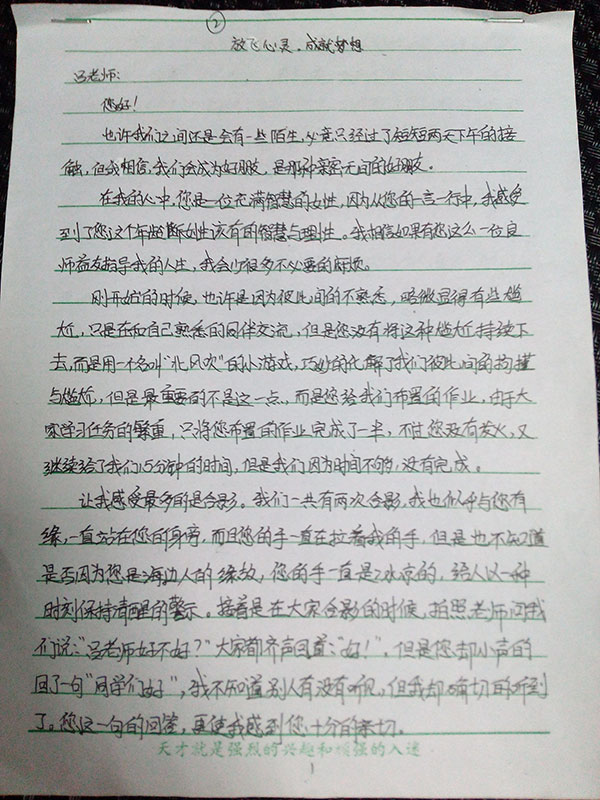 ②
放飞心灵.成就梦想
吕老师:
您好!
也许我们之间还是会有一些陌生,必竟只经过了短短两天下午的接
触,但我相信,我们会成为好朋友,是那种亲密无间的好朋友。
在我的心中,您是一位充满智慧的女性,因为从您的一言一行中,我感受
到了您这个年龄断女性该有的智慧与理性。我相信如果有您这么一位良
师益友指导我的人生,我会少很多不必要的麻烦。
刚开始的时候,也许是因为彼此间的不熟悉,略微显得有些尴
尬,只是在和自己熟悉的同伴交流,但是您没有将这种尴尬持续下
去,而是用一个名叫"北风吹"的小游戏,巧妙的化解了我们彼此间的拘谨
与尴尬,但是最重要的不是这一点,而是您给我们布置的作业,由于大
家学习任务的繁重,只将您布置的作业完成了一半,不过您没有发火,又
继续给了我们15分钟的时间,但是我们因为时间不够,没有完成。
让我感受最多的是合影。我们一共有两次合影,我也似乎与您有
缘,一直站在您的身旁,而且您的手一直在拉着我的手,但是也不知道
是否因为您是海边人的缘故,您的手一直是冰凉的,给人以一种
时刻保持清醒的警示。接着是在大家合影的时候,拍照老师问我
们说:"吕老师好不好?"大家都齐声回道:"好!",但是您却小声的
回了一句"同学们好",我不知道别人有没有听见,但我却确切的听到
了。您这一句的回答,更使我感到您十分的亲切。
天才就是强烈的兴趣和顽强的入迷
1